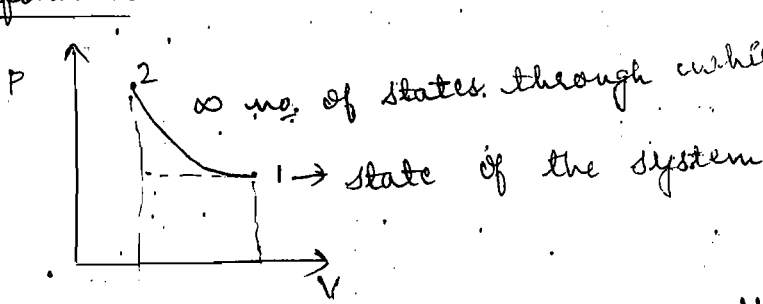 P
2
∞ no. of states. through
1 → state of the system
V